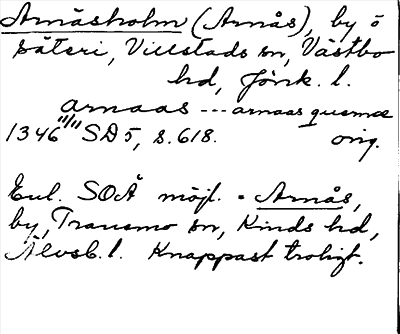 Arnäsholm (Arnås), by ö
säteri, Villstads sn, Västbo
hd, Jönk. l.
arnaas --- arnaas quernæ
1346 11/11 SD5, s. 618. orig.
Enl. SOÄ möjl. = Arnås,
by, Tranemo sn, Kinds hd,
Älvsb. l. Knappast troligt.